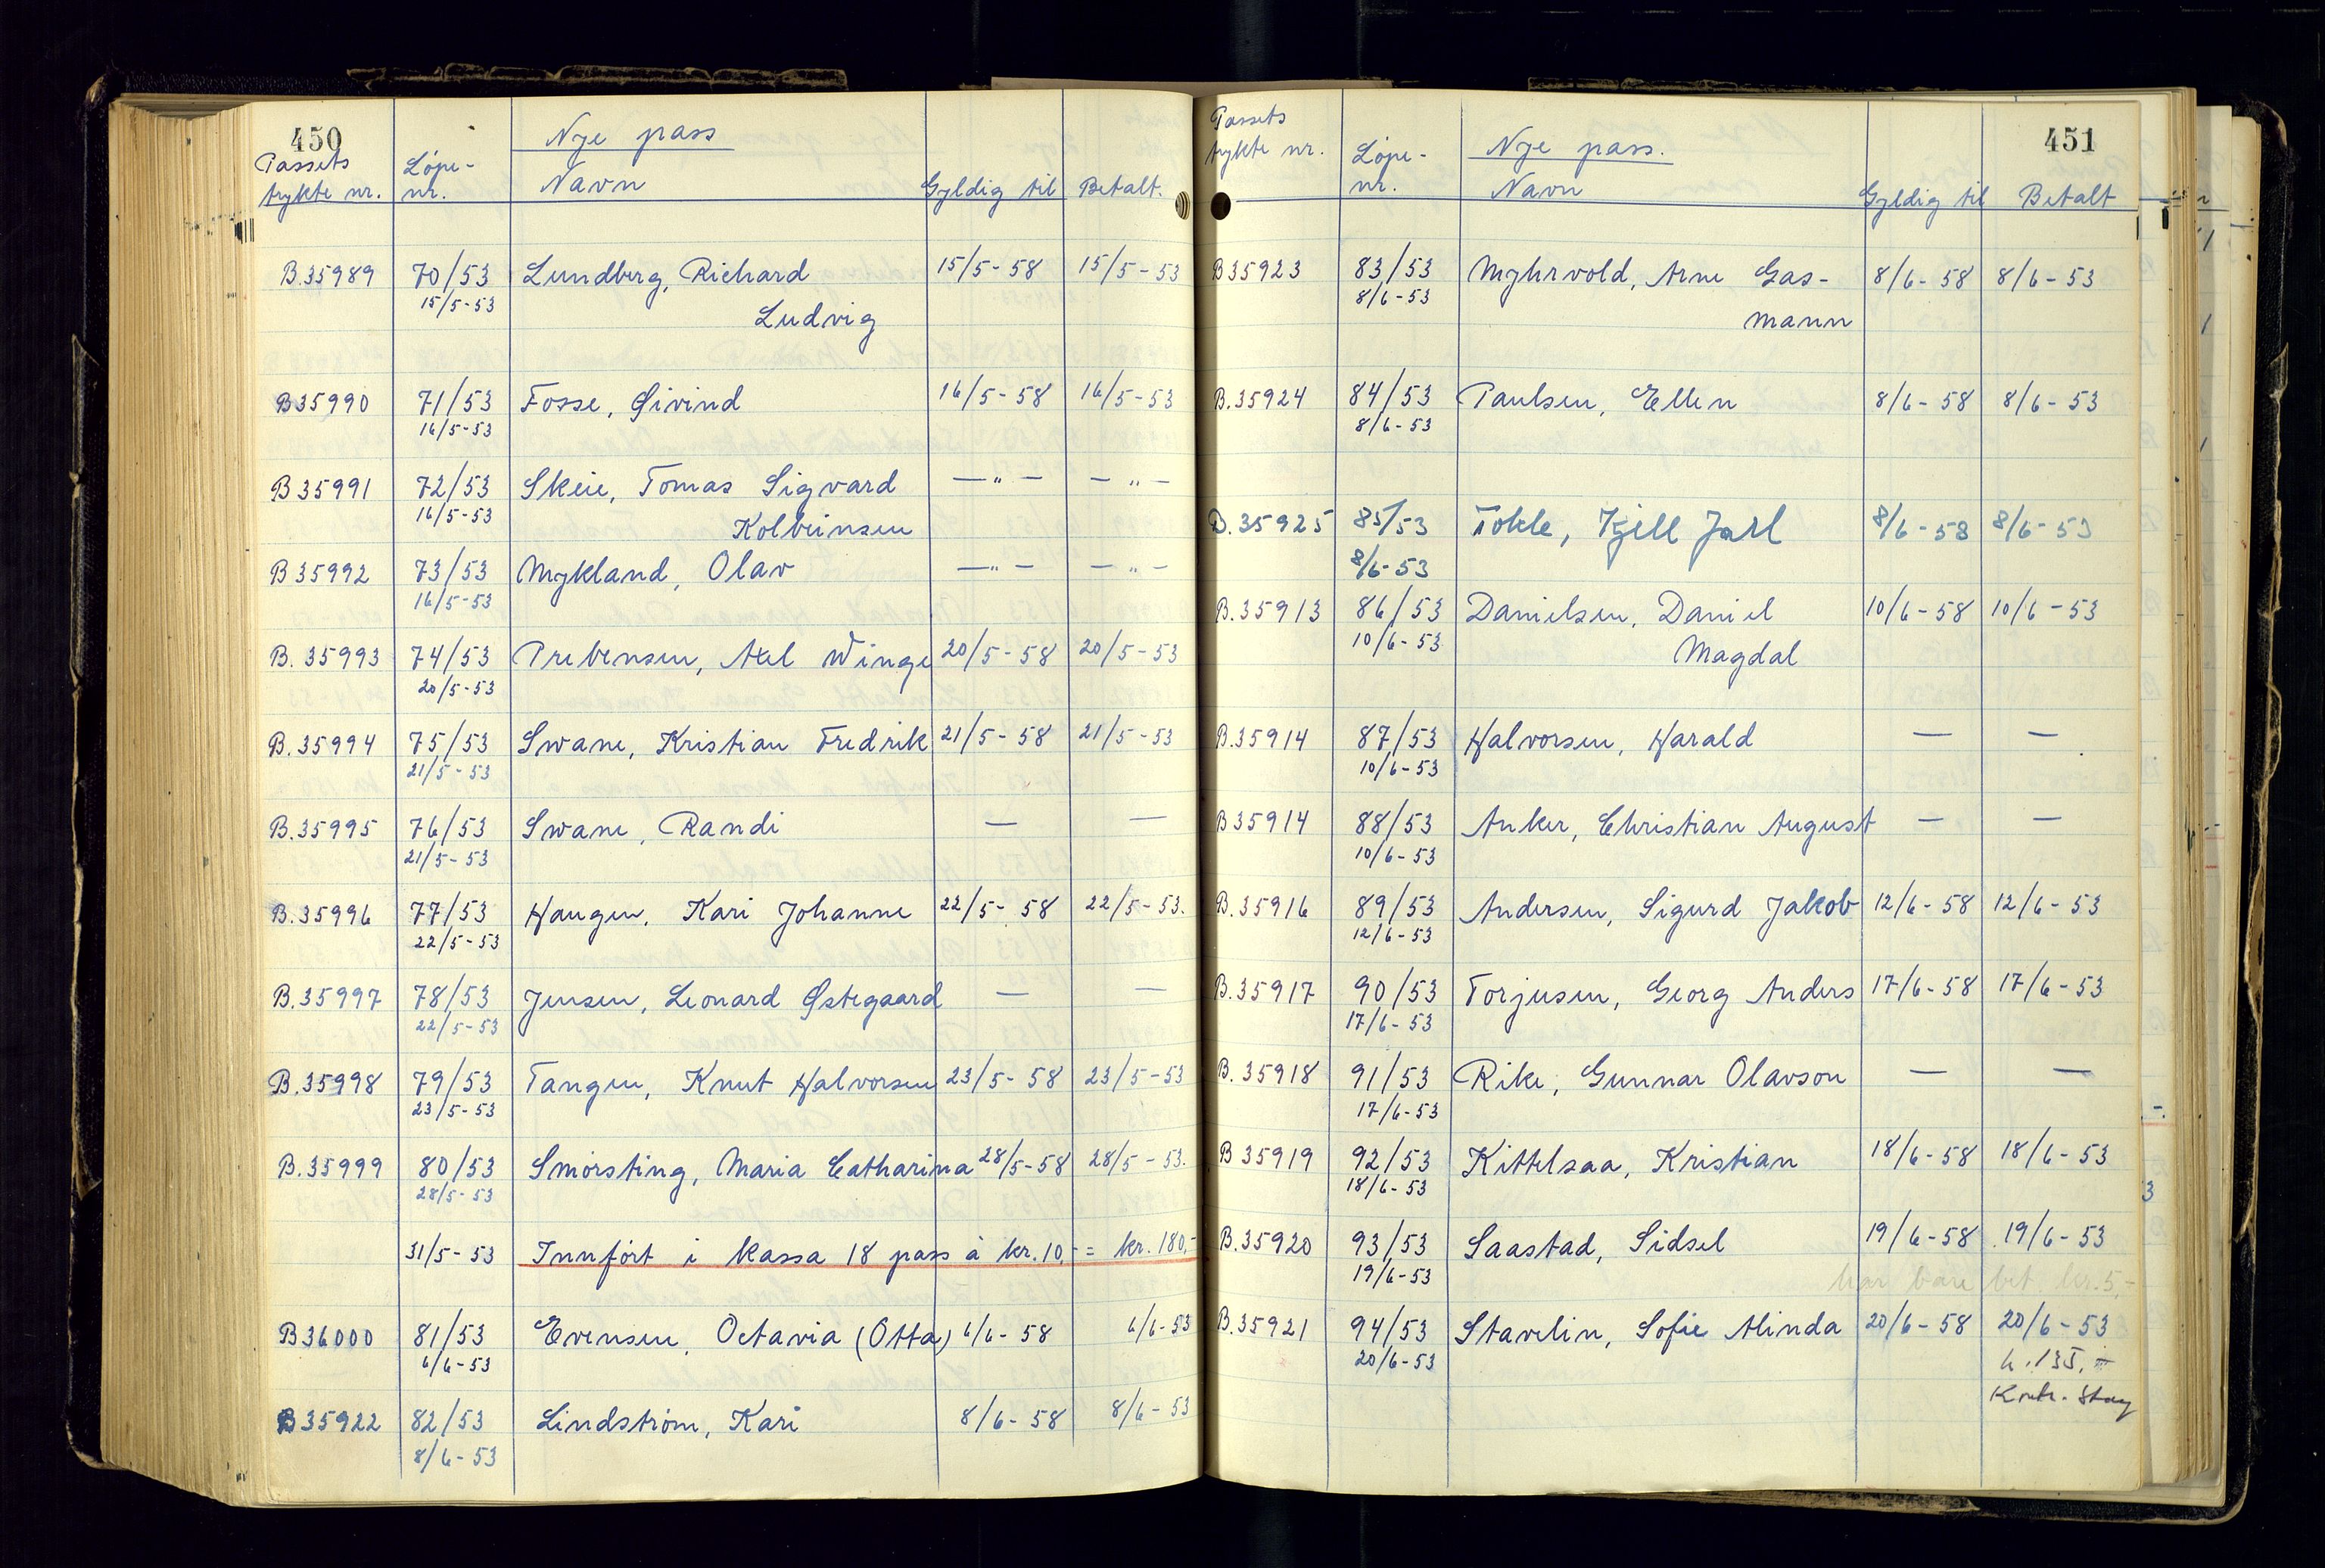 450
Nye pass
Passets Løpe-
trykte nr. nr. Navn Gyldig til Betalt.
B.35989 70/53 Lundberg, Richard 15/5-58 15/5-53
15/5-53 Ludvig
B35990 71/53 Fosse, Øivind 16/5-58 16/5-53
16/5-53
B35991 72/53 Skeie, Tomas Sigvard —"— —"—
16/5-53 Kolbeinsen
B35992 73/53 Mykland, Olav —"— —"—
16/5-53
B.35993 74/53 Prebensen, Axel Winge 20/5-58 20/5-53
20/5-53
B.35994 75/53 Swane, Kristian Fredrik 21/5-58 21/5-53
21/5-53
B.35995 76/53 Swane, Randi — —
21/5-53
B.35996 77/53 Haugen, Kari Johanne 22/5-58 22/5-53.
22/5-53
B.35997 78/53 Jensen, Leonard Østegaard — —
22/5-53
B.35998 79/53 Tangen, Knut Halvorsen 23/5-58 23/5-53
23/5-53
B.35999 80/53 Smørsting, Maria Catharina 28/5-58 28/5-53.
28/5-53
31/5-53 Innført i kassa 18 pass à kr.10,- = kr. 180,-
B36000 81/53 Evensen, Octavia (Otta) 6/6-58 6/6-53
6/6-53
B35922 82/53 Lindstrøm, Kari 8/6-58 8/6-53
8/6-53
451
Passets
trykte nr. Løpe- Nye pass.
nr. Navn Gyldig til Betalt
B35923 83/53 Myhrvold, Arne Gas- 8/6-58 8/6-53
8/6-53 mann
B.35924 84/53 Paulsen, Ellen 8/6-58 8/6-53
8/6-53
B.35925 85/53 Tokle, Kjell Jarl 8/6-58 8/6-53
8/6-53
B.35913 86/53 Danielsen, Daniel 10/6-58 10/6-53
10/6-53 Magdal
B.35914 87/53 Halvorsen, Harald — —
10/6-53
B35914 88/53 Anker, Christian August — —
10/6-53
B.35916 89/53 Andersen, Sigurd Jakob 12/6-58 12/6-53
12/6-53
B.35917 90/53 Torjusen, Georg Anders 17/6-58 17/6-53
17/6-53
B.35918 91/53 Rike, Gunnar Olavson — —
17/6-53
B35919 92/53 Kittelsaa, Kristian 18/6-58 18/6-53
18/6-53
B.35920 93/53 Saastad, Sidsel 19/6-58 19/6-53
19/6-53 har bare bet. kr.5,-
B.35921 94/53 Stavelin, Sofie Alinda 20/6-58 20/6-53
20/6-53 135,-
Kontr.